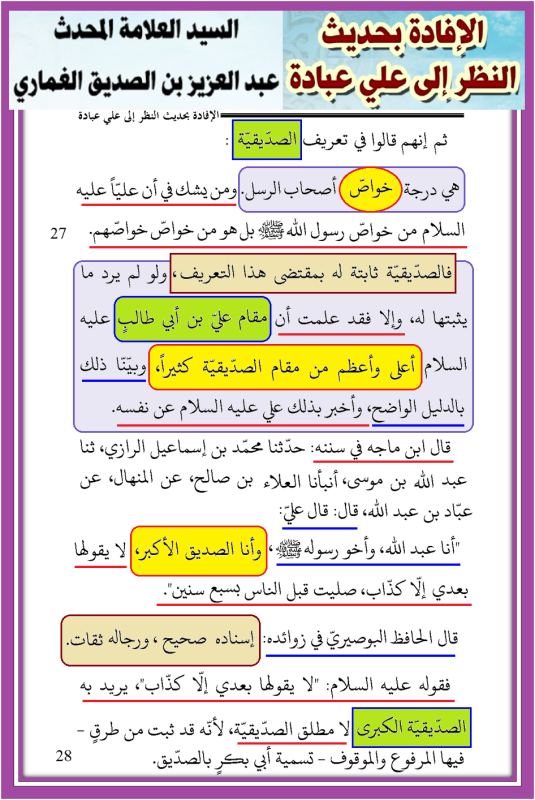 الإفادة بحديث
النظر إلى علي عبادة
السيد العلامة المحدث
عبد العزيز بن الصديق الغماري
الإفادة بحديث النظر إلى علي عبادة
ثم إنهم قالوا في تعريف الصدّيقيّة :
هي درجة خواصّ أصحاب الرسل. ومن يشك في أن عليّاً عليه
السلام من خواصّ رسول الله ﷺ بل هو من خواصّ خواصّهم.
27
فالصدّيقيّة ثابتة له بمقتضى هذا التعريف، ولو لم يرد ما
يثبتها له، وإلا فقد علمت أن مقام عليّ بن أبي طالبٍ عليه
السلام أعلى وأعظم من مقام الصدّيقيّة كثيراً، وبيّنّا ذلك
بالدليل الواضح، وأخبر بذلك علي عليه السلام عن نفسه.
قال ابن ماجه في سننه: حدّثنا محمّد بن إسماعيل الرازي، ثنا
عبد الله بن موسى، أنبأنا العلاء بن صالح، عن المنهال، عن
عبّاد بن عبد الله، قال: قال عليّ:
"أنا عبد الله، وأخو رسوله ﷺ، وأنا الصديق الأكبر، لا يقولها
بعدي إلّا كذّاب، صليت قبل الناس بسبع سنين".
قال الحافظ البوصيريّ في زوائده: إسناده صحيح ، ورجاله ثقات.
فقوله عليه السلام: "لا يقولها بعدي إلّا كذّاب"، يريد به
الصدّيقيّة الكبرى لا مطلق الصدّيقيّة، لأنّه قد ثبت من طرقٍ -
فيها المرفوع والموقوف - تسمية أبي بكرٍ بالصدّيق.
28